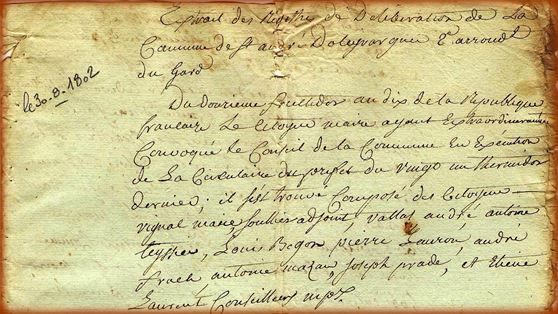 Extrait des Registre de Deliberation de La
Commune de St andré Doleyrargues 2e arrondt
du Gard
le 30-8-1802
Du douzieme fructidor an dix de la Republique
francaise Le Citoyen maire ayant Extraordinairement
Convoqué le Conseil de la Commune en Execution
de La Circulaire du prefet du vingt un thermidor
dernier; il s'est trouvé Composé des Citoyens
vignal maire soullier adjoint, vallat andré antoine
teyssier, Louis Begon pierre Lauron, andré
frach antoine mazan, joseph prade, et Etiene
Laurent Conseillers mpx.